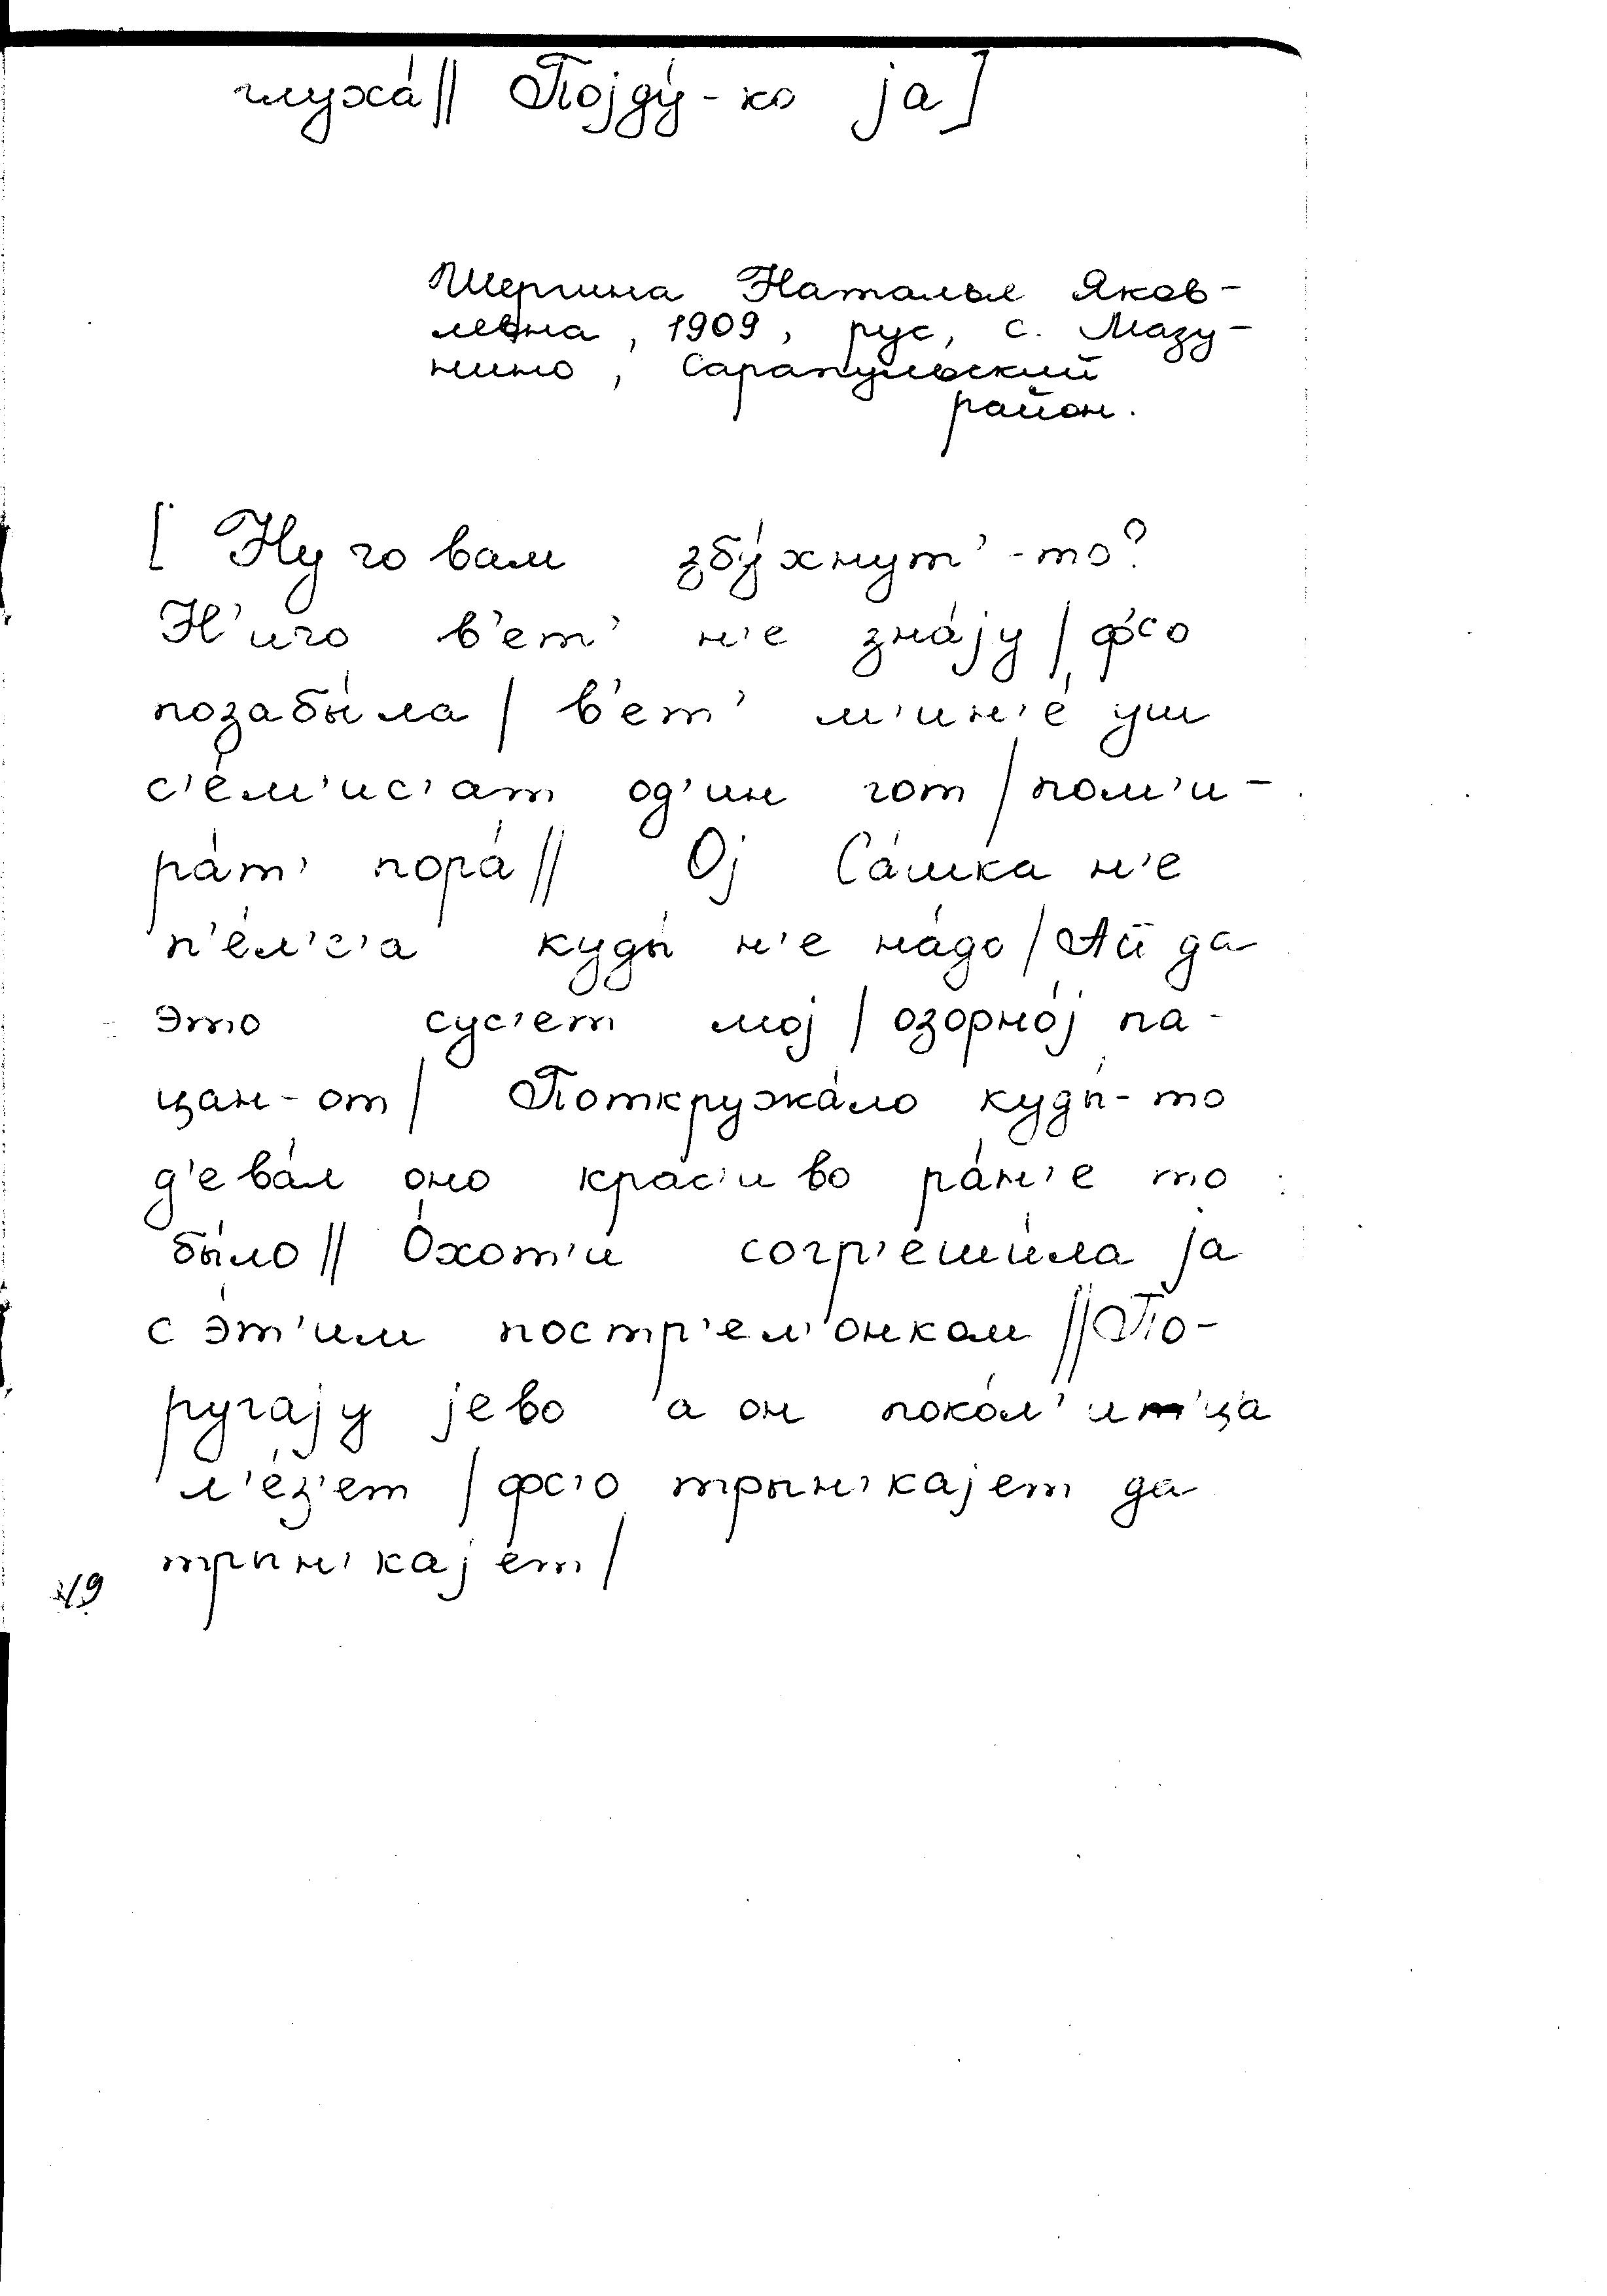 глуха́|| Појду́-ко ја]
Шергина Наталья Яков-
левна, 1909, рус, с. Мазу-
нино, Сарапульский
район.
[ Ну чо вам збу́хнут'-то?
Н'ичо в'ет' н'е зна́ју | ф'со
позабы́ла | в'ет' м'ин'е́ уш
с'е́м'ис'ат од'ин гот | пом'и-
ра́т' пора́|| Ој Са́шка н'е
п'е́л'с'а куды́ н'е на́до | Ай да
это сус'ет мој | озорно́ј па-
цан-от | Поткружа́ло куды́-то
д'ева́л оно крас'и во ра́н'е то
бы́ло|| О́хот'и согр'еши́ла ја
с э́т'им постр'ел'онком || По-
ругају јево а он поко́л'ица
л'е́з'ет | фс'о трын'кајет да
трын'кајет |
49